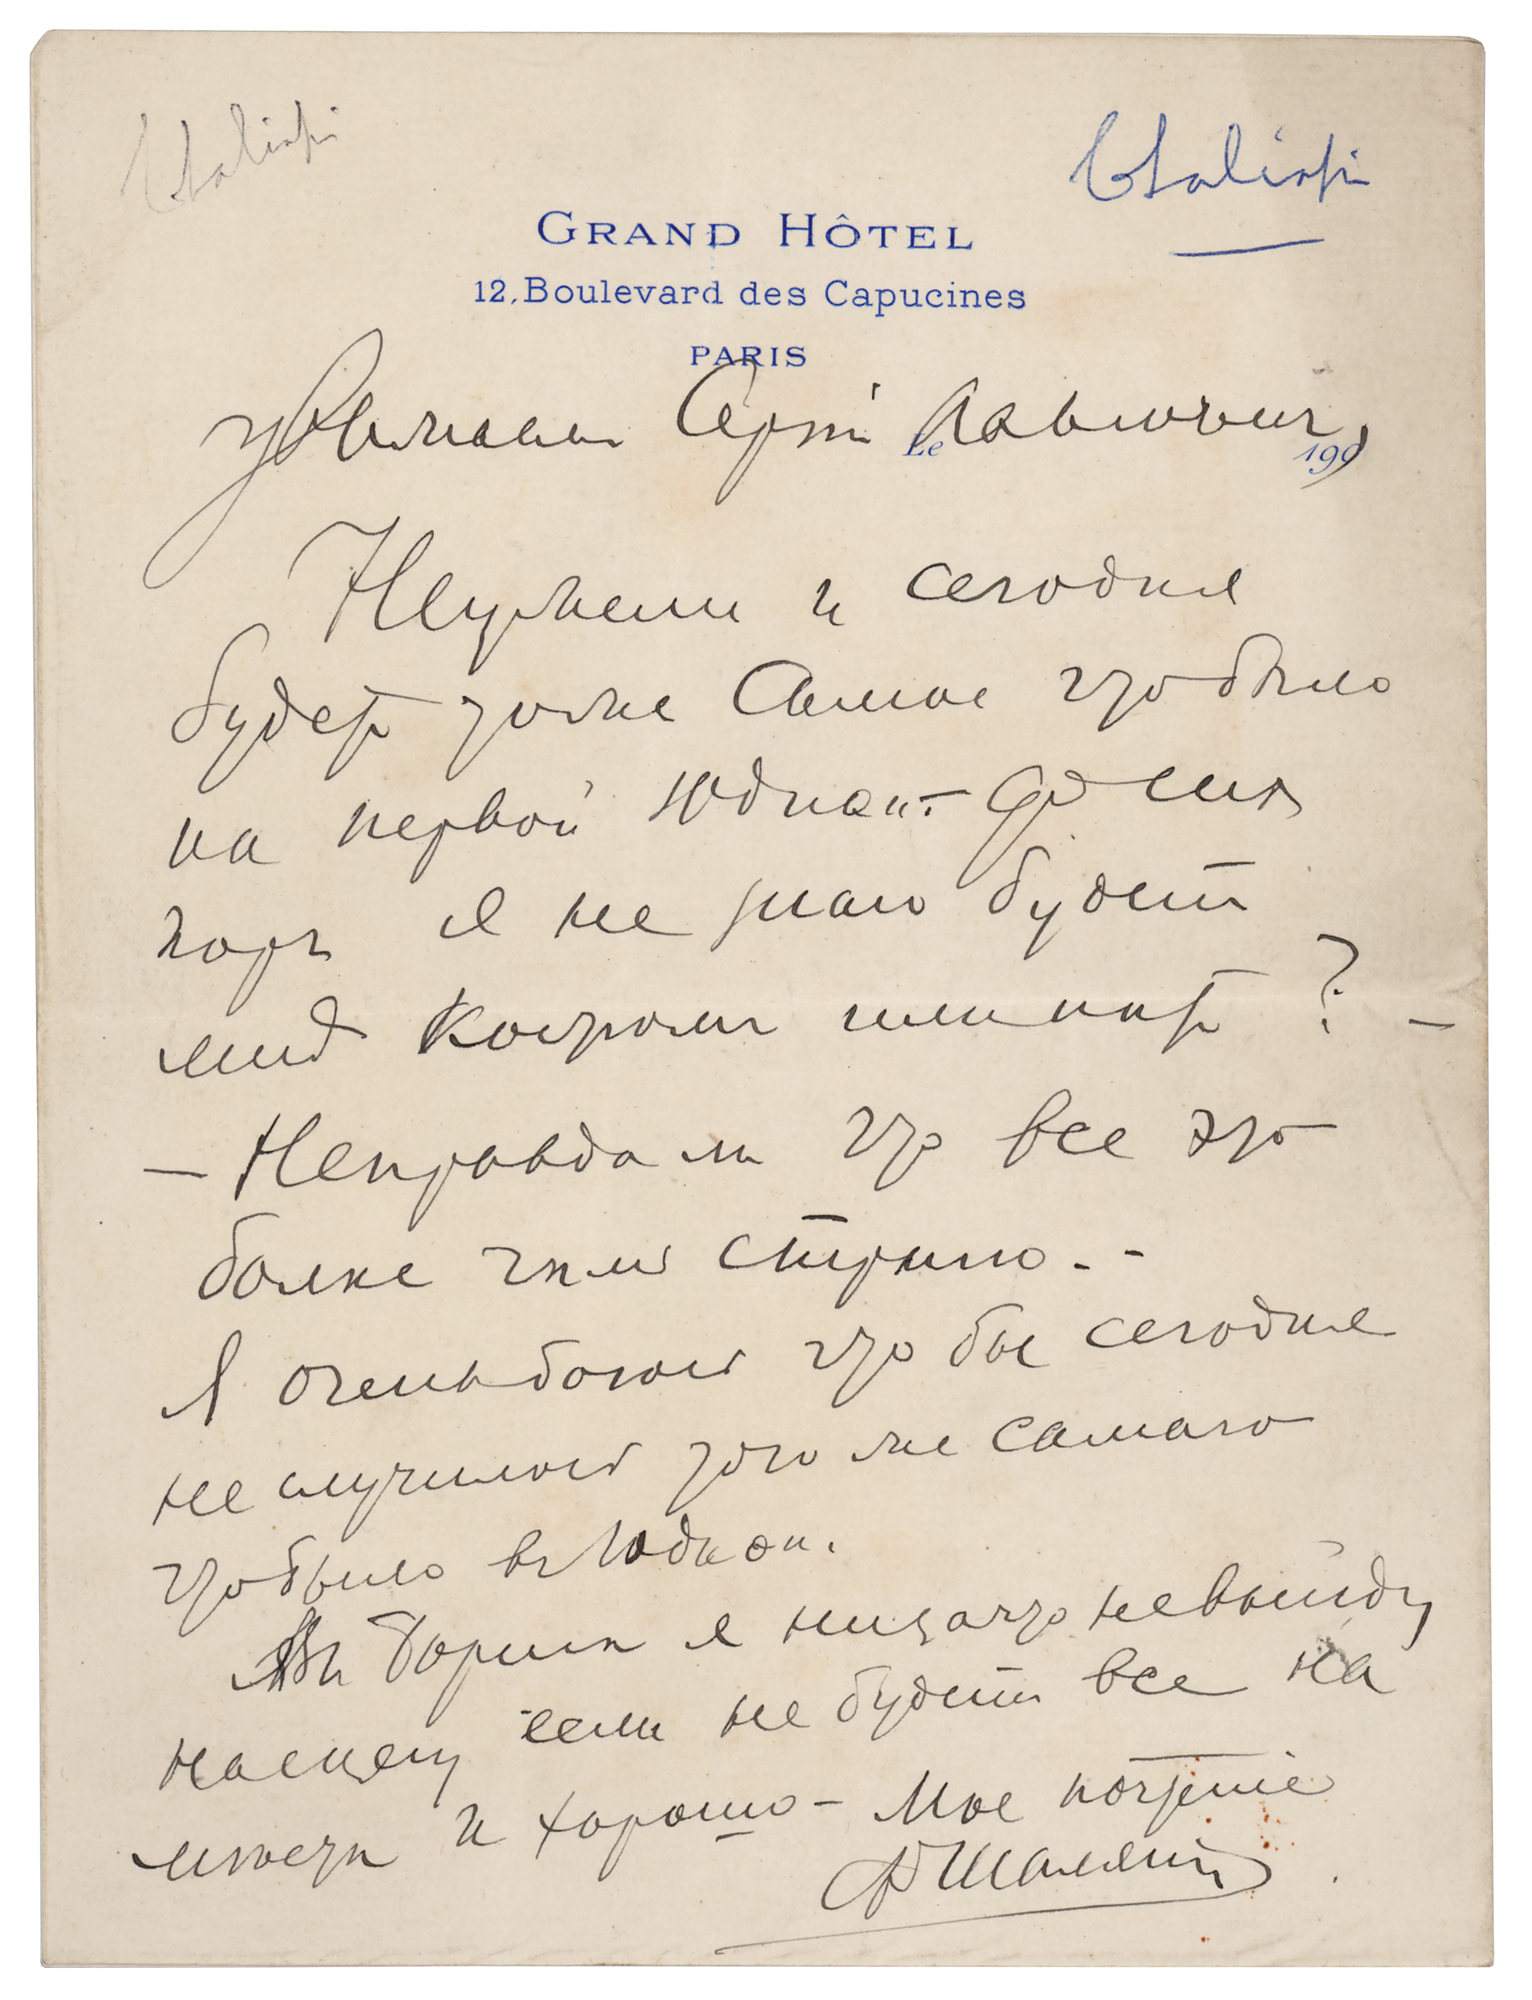 Chaliapin
Chaliapin
GRAND HÔTEL
12, Boulevard des Capucines
PARIS
Le 190
Сергѣй Павловичъ,
Неужели и сегодня
будетъ тоже самое что было
на первой Юдиѳи. — До сихъ
поръ я не знаю будетъ
мнѣ костромъ или нѣтъ? —
— Неправда ли что все это
болѣе чѣмъ странно. -
Я очень боюсь что бы сегодня
не случилось того же самаго
что было въ Юдиѳи.
Въ Борисѣ я ни за что не выйду
на сцену если не будетъ все на
мѣстѣ и хорошо — Мое почтеніе
ФШаляпинъ